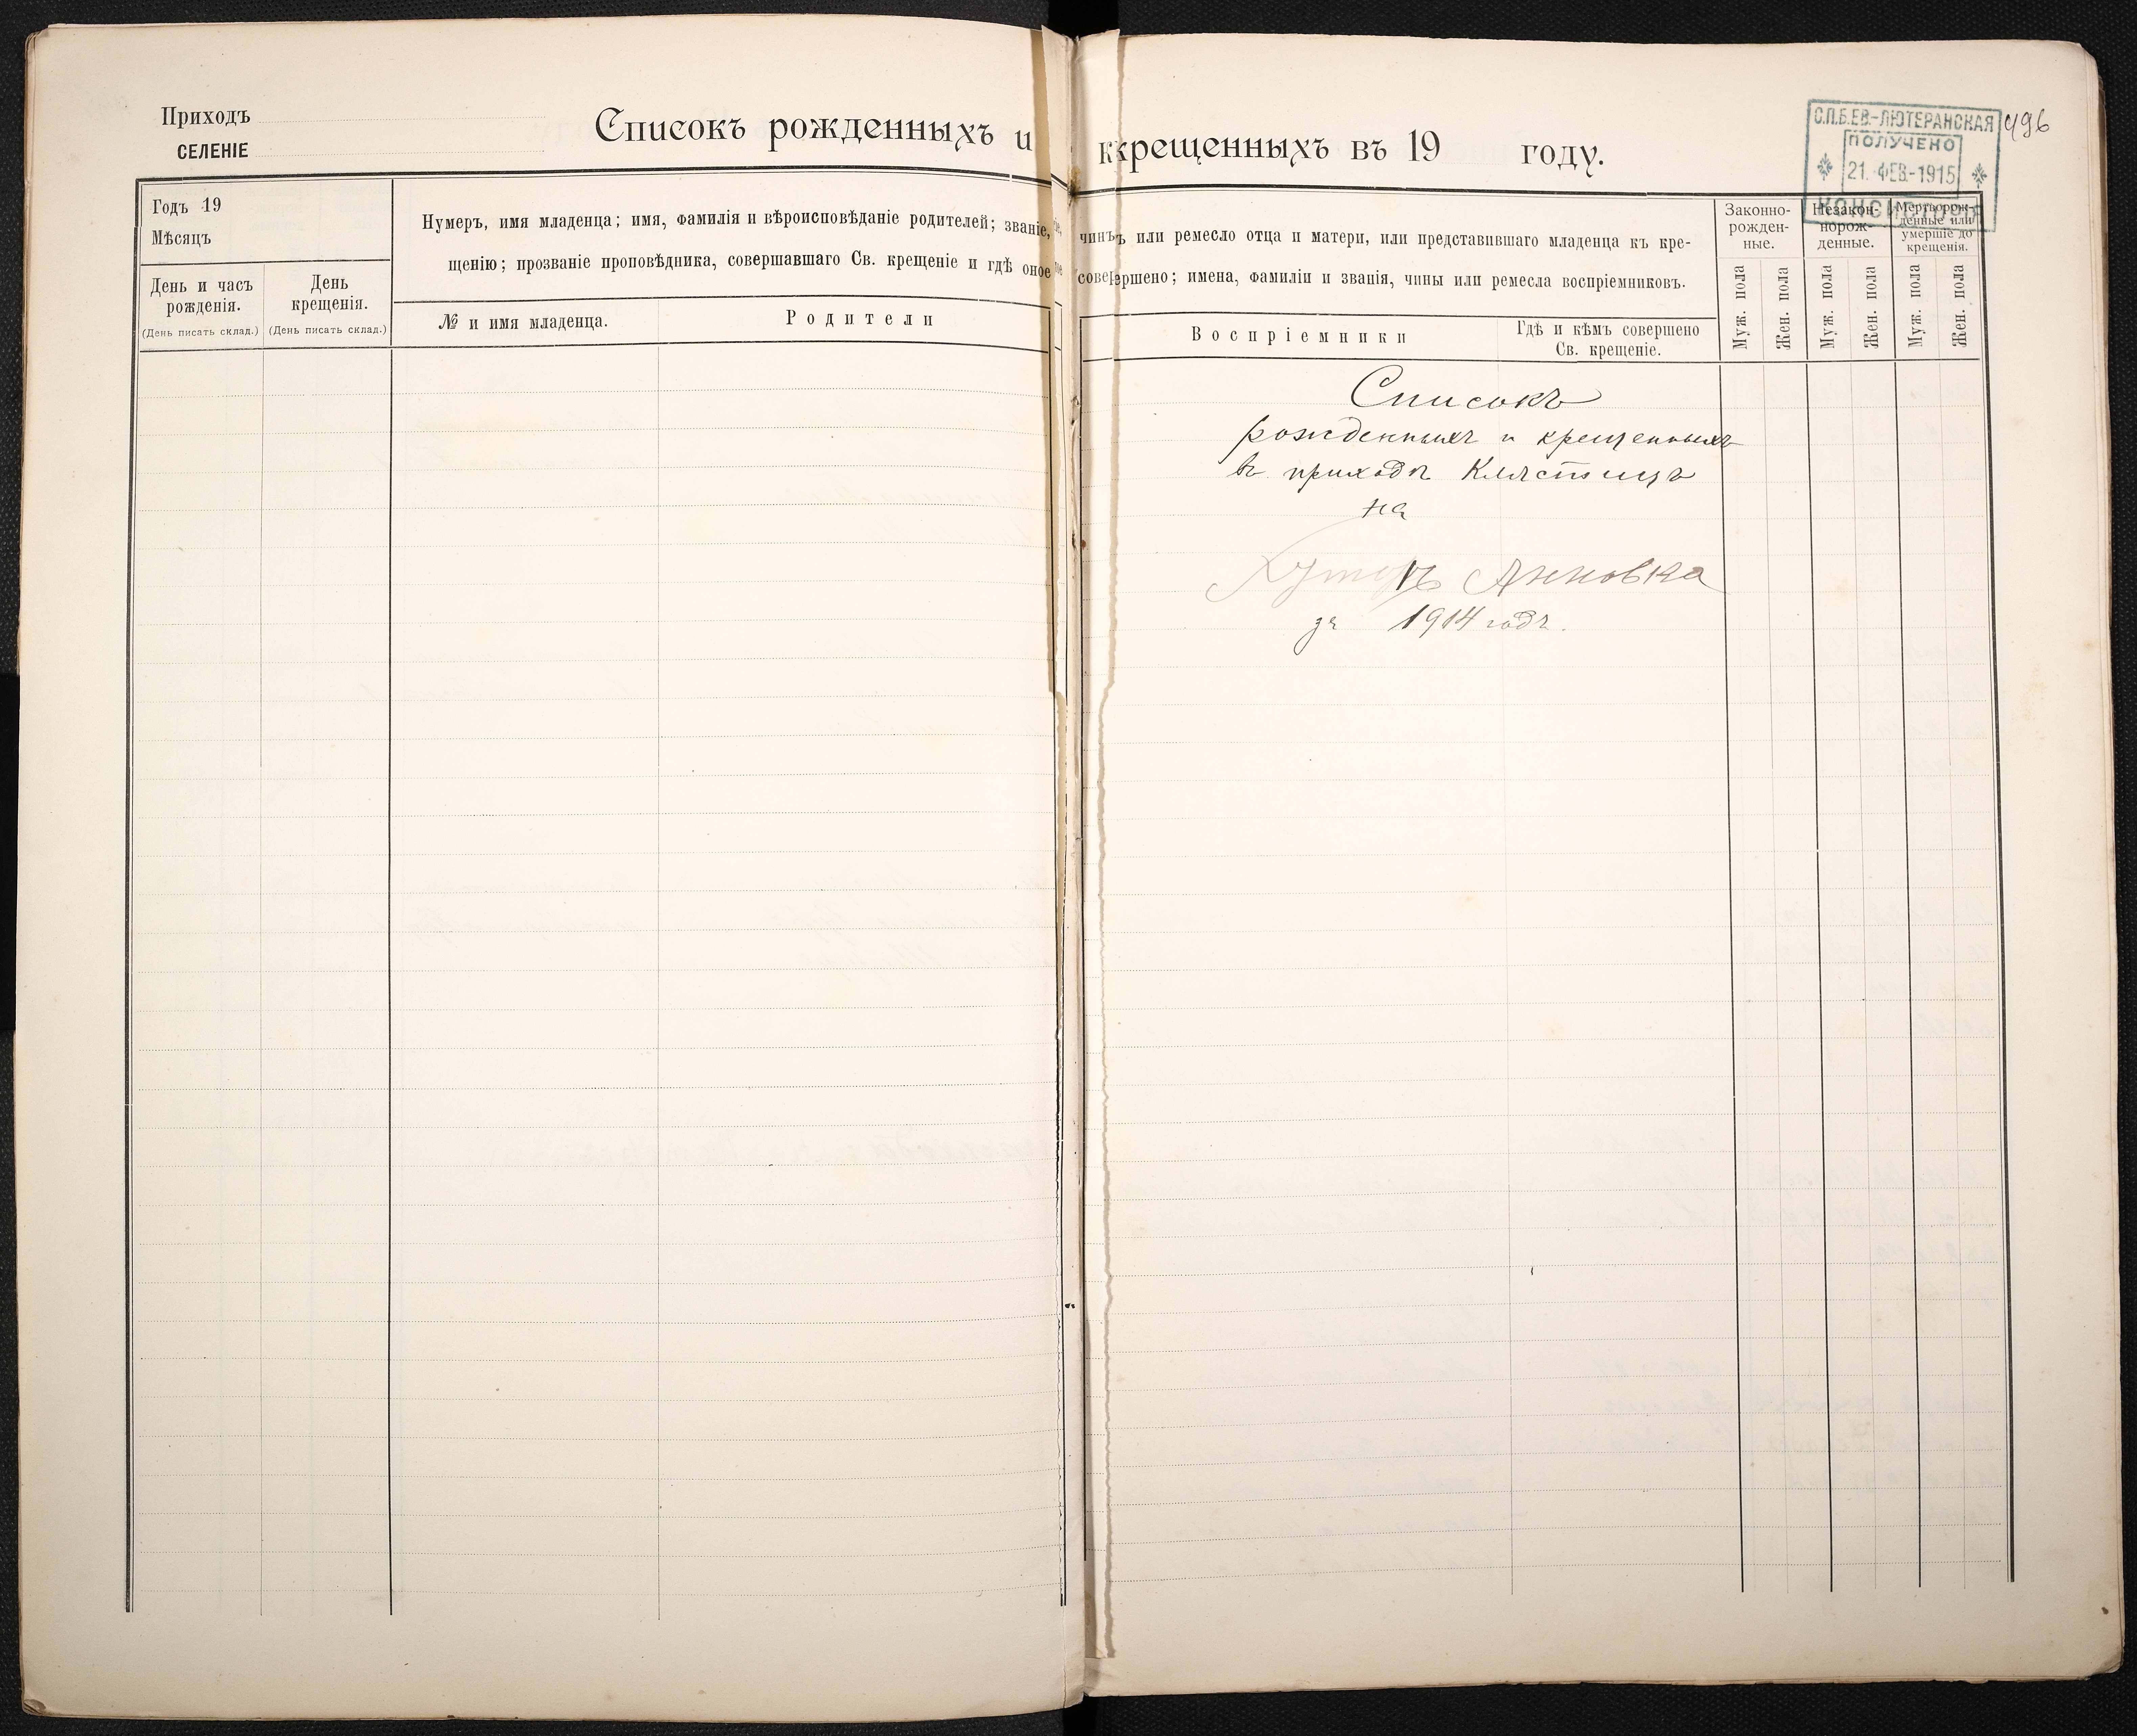 Приходъ
СЕЛЕНІЕ
Списокъ рожденныхъ и
Годъ 19
Мѣсяцъ
Нумеръ, имя младенца; имя, фамилія и вѣроисповѣданіе родителей; званіе,
щенію; прозваніе проповѣдника, совершавшаго Св. крещеніе и гдѣ оное
День и часъ
рожденія.
(День писать склад.)
День
крещенія.
(День писать склад.)
№ и имя младенца.
Родители
крещенныхъ въ 19 году.
С.П.Б.ЕВ.-ЛЮТЕРАНСКАЯ
ПОЛУЧЕНО
21. ФЕВ.-1915
КОНСИСТОРІЯ
496
чинъ или ремесло отца и матери, или представившаго младенца къ кре-
совершено; имена, фамиліи и званія, чины или ремесла воспріемниковъ.
Воспріемники
Гдѣ и кѣмъ совершено
Св. крещеніе.
Законно-
рожден-
ные.
Незакон-
норож-
денные.
Мертворож-
денные или
умершіе до
крещенія.
Муж. пола
Жен. пола
Муж. пола
Жен. пола
Муж. пола
Жен. пола
Списокъ
рожденныхъ и крещенныхъ
въ приходѣ Клястицъ
на
Хуторъ Анновка
за 1914 годъ.